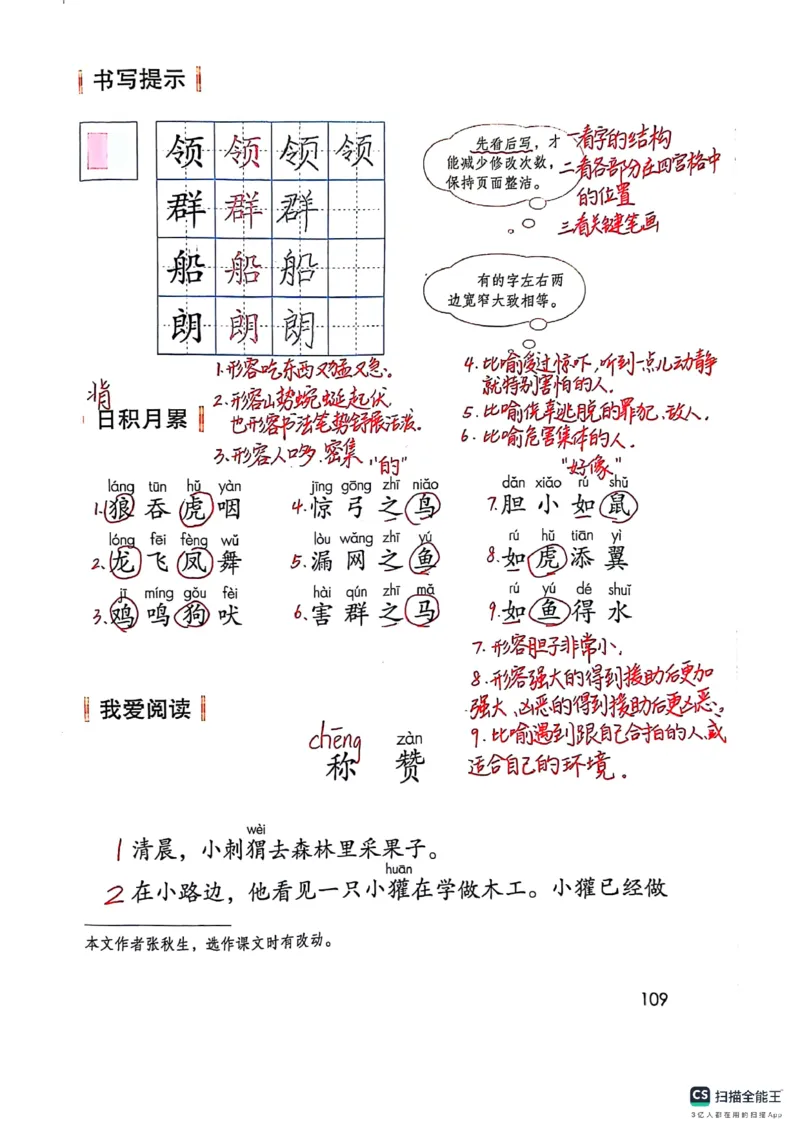 书写提示
领 领 领 领
群 群 群
船 船 船
朗 朗 朗
先看后写，才
能减少修改次数，
保持页面整洁。
一看字的结构
二看各部分在四宫格中
的位置
三看关键笔画
有的字左右两
边宽窄大致相等。
1.形容吃东西又猛又急。
2.形容山势蜿蜒起伏
也形容书法笔势舒展活泼。
3.形容人多.密集
4.比喻受过惊吓,听到一点儿动静
就特别害怕的人.
5.比喻侥幸逃脱的罪犯、敌人.
6.比喻危害集体的人.
背
日积月累
"的"
"好像"
láng tūn hǔ yàn
1.狼 吞 虎 咽
jīng gōng zhī niǎo
4.惊 弓 之 鸟
dǎn xiǎo rú shǔ
7.胆 小 如 鼠
lóng fēi fèng wǔ
2.龙 飞 凤 舞
lòu wǎng zhī yú
5.漏 网 之 鱼
rú hǔ tiān yì
8.如 虎 添 翼
jī míng gǒu fèi
3.鸡 鸣 狗 吠
hài qún zhī mǎ
6.害 群 之 马
rú yú dé shuǐ
9.如 鱼 得 水
7.形容胆子非常小.
8.形容强大的得到援助后更加
强大、凶恶的得到援助后更凶恶。
9.比喻遇到跟自己合拍的人或
适合自己的环境.
我爱阅读
chēng zàn
称 赞
wèi
1 清晨，小刺猬去森林里采果子。
huān
2 在小路边，他看见一只小獾在学做木工。小獾已经做
本文作者张秋生，选作课文时有改动。
109
CS 扫描全能王
3亿人都在用的扫描App